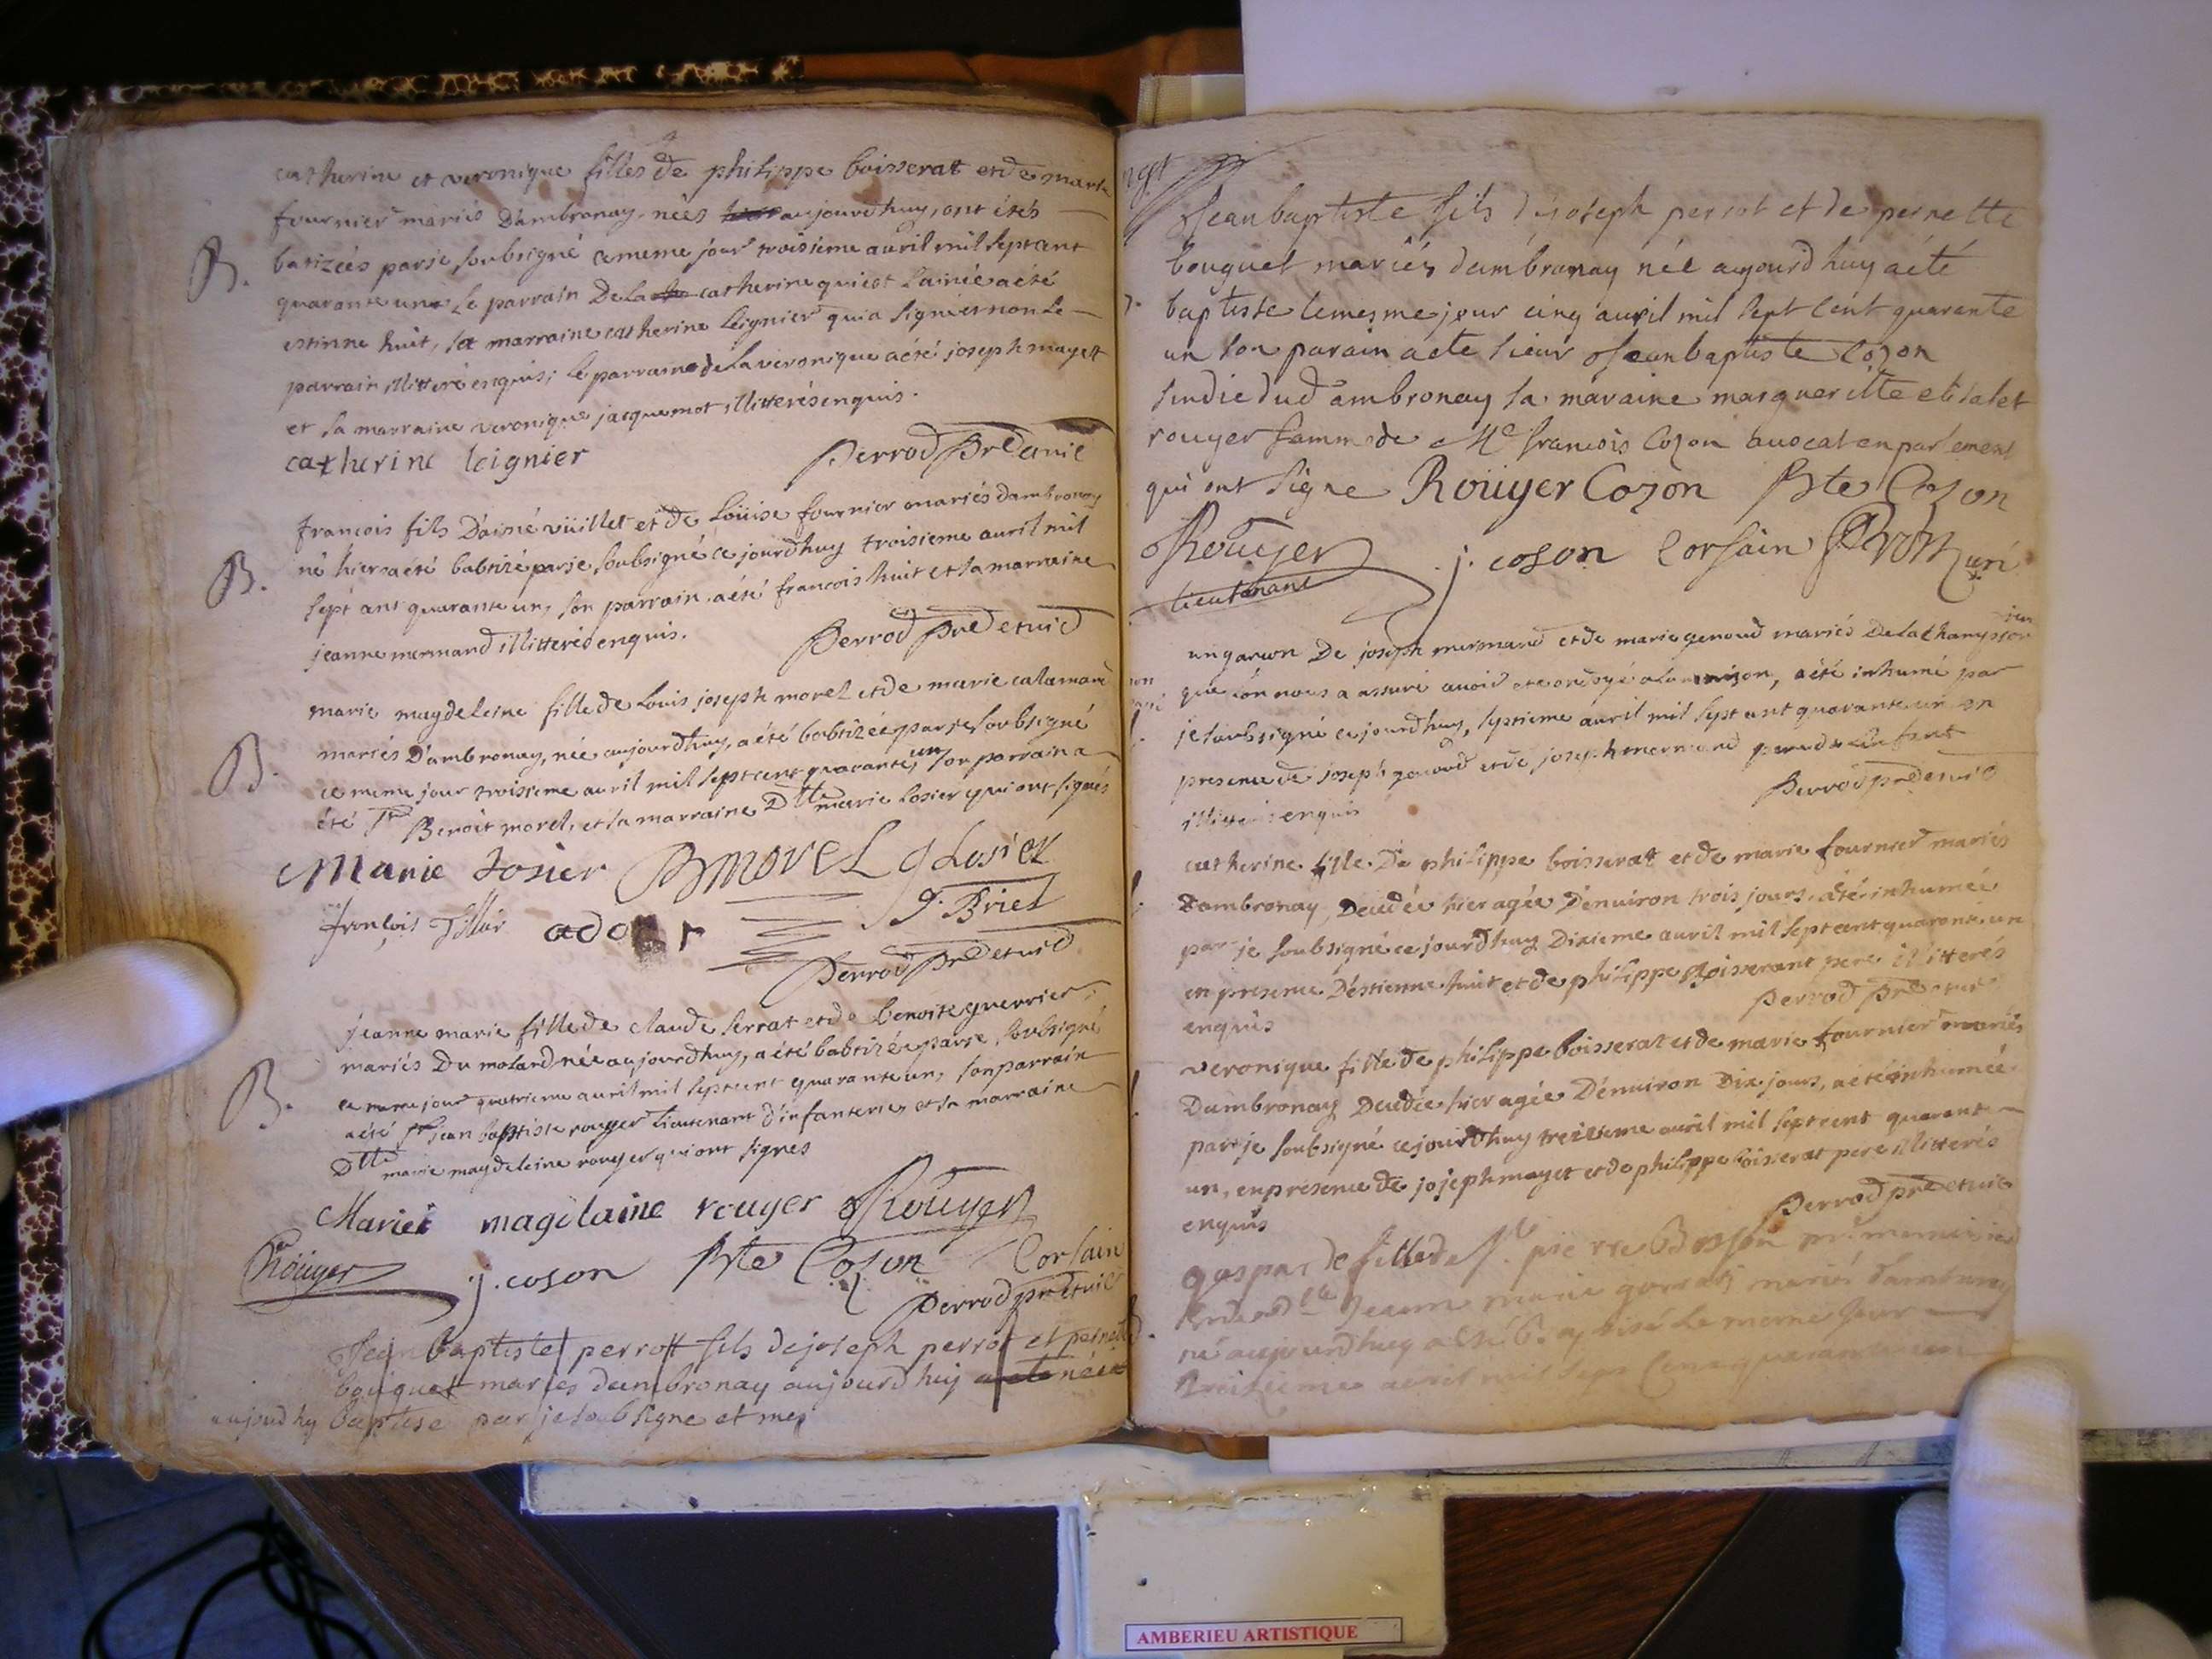 catherine et veronique filles de philippe boisserat et de marie
fournier mariés D'ambronay, nées aujourdhuy, ont étés
B. batizées par je soubsigné ce meme jour troisieme auril mil sept cent
quarante un. Le parrain De la catherine qui est lainée a été
estinne huit, sa marraine catherine leignier qui a signé et non le
parrain illitteré enquis; le parrain de la veronique a été joseph mayet
et sa marraine veronique jacquemot illitterés enquis.
catherine leignier Perrod
francois fils D'aimé vüillet et de Loüise fournier mariés dambronay
né hier a été babtizé par je soubsigné ce jourdhuy troisieme auril mil
B. sept cent quarante un, son parrain a été francois huit et sa marraine
jeanne mermand illitterés enquis. Perrod
marie magdeleine fille de Louis joseph morel et de marie calamard
mariés D'ambronay, née aujourdhuy, a été babtizée par je soubsigné
B. ce meme jour troisieme auril mil sept cent quarante un son parrain a
été Sr Benoit morel, et sa marraine Dlle marie Losier qui ont signés
Marie Losier B morel g Losier
françois J. Briel
Perrod
jeanne marie fille de claude serrat et de benoite guerrier
mariés Du molard née aujourdhuy, a été babtizée par je soubsigné
B. ce meme jour quatrieme auril mil sept cent quarante un, son parrain
a été Sr jean baptiste rouyer lieutenant d'infanterie, et sa marraine
Dlle marie magdeleine rouyer qui ont signés
Marie magdelaine rouyer Roüyer
Roüyer j. coson Bte Cozon Corsain
Perrod
Jean baptiste perrott fils de joseph perrot et pernette
bouguet mariés dambronay aujourd huy née
aujourd hy baptise par je soubsigne et mes
Jean baptiste fils de joseph perrot et de pernette
bouguet mariés dambronay née aujourd huy a été
baptiste le mesme jour cinq auril mil sept cent quarante
un son parain a ete sieur Jean baptiste Cozon
sindic dud ambronay sa maraine marguerite elisabet
rouyer famme de Me francois Cozon auocat en parlement
qui ont signe Roüyer Cozon Bte Cozon
Roüyer j. coson Corsain
lieutenant
un garcon De joseph mermand et de marie genoud mariés De la
que l'on nous a assuré auoir ete ondoyé a la maison, a été inhumé par
je soubsigné ce jourdhuy, septieme auril mil sept cent quarante un en
presence de joseph genoud et de joseph mermand pere de l'enfant
illitterés enquis Perrod
catherine fille De philippe boisserat et de marie fournier mariés
Dambronay, Decedée hier agée Denuiron trois jours, a été inhumée
par je soubsigné ce jourdhuy Dixieme auril mil sept cent quarante un
en presence D'estienne huit et de philippe Boisserant pere illitterés
enquis Perrod
veronique fille de philippe boisserat et de marie fournier mariés
Dambronay Decedée hier agée Denuiron Dix jours, a été inhumée
par je soubsigné ce jourdhuy treizieme auril mil sept cent quarant
un, en presence de joseph mayet et de philippe boisserat pere illitterés
enquis Perrod
gaspar de pierre
jeanne marie mariés dambronay
né aujourdhuy a été baptisé le meme jour
treizieme auril mil sept cent quarante un
AMBERIEU ARTISTIQUE